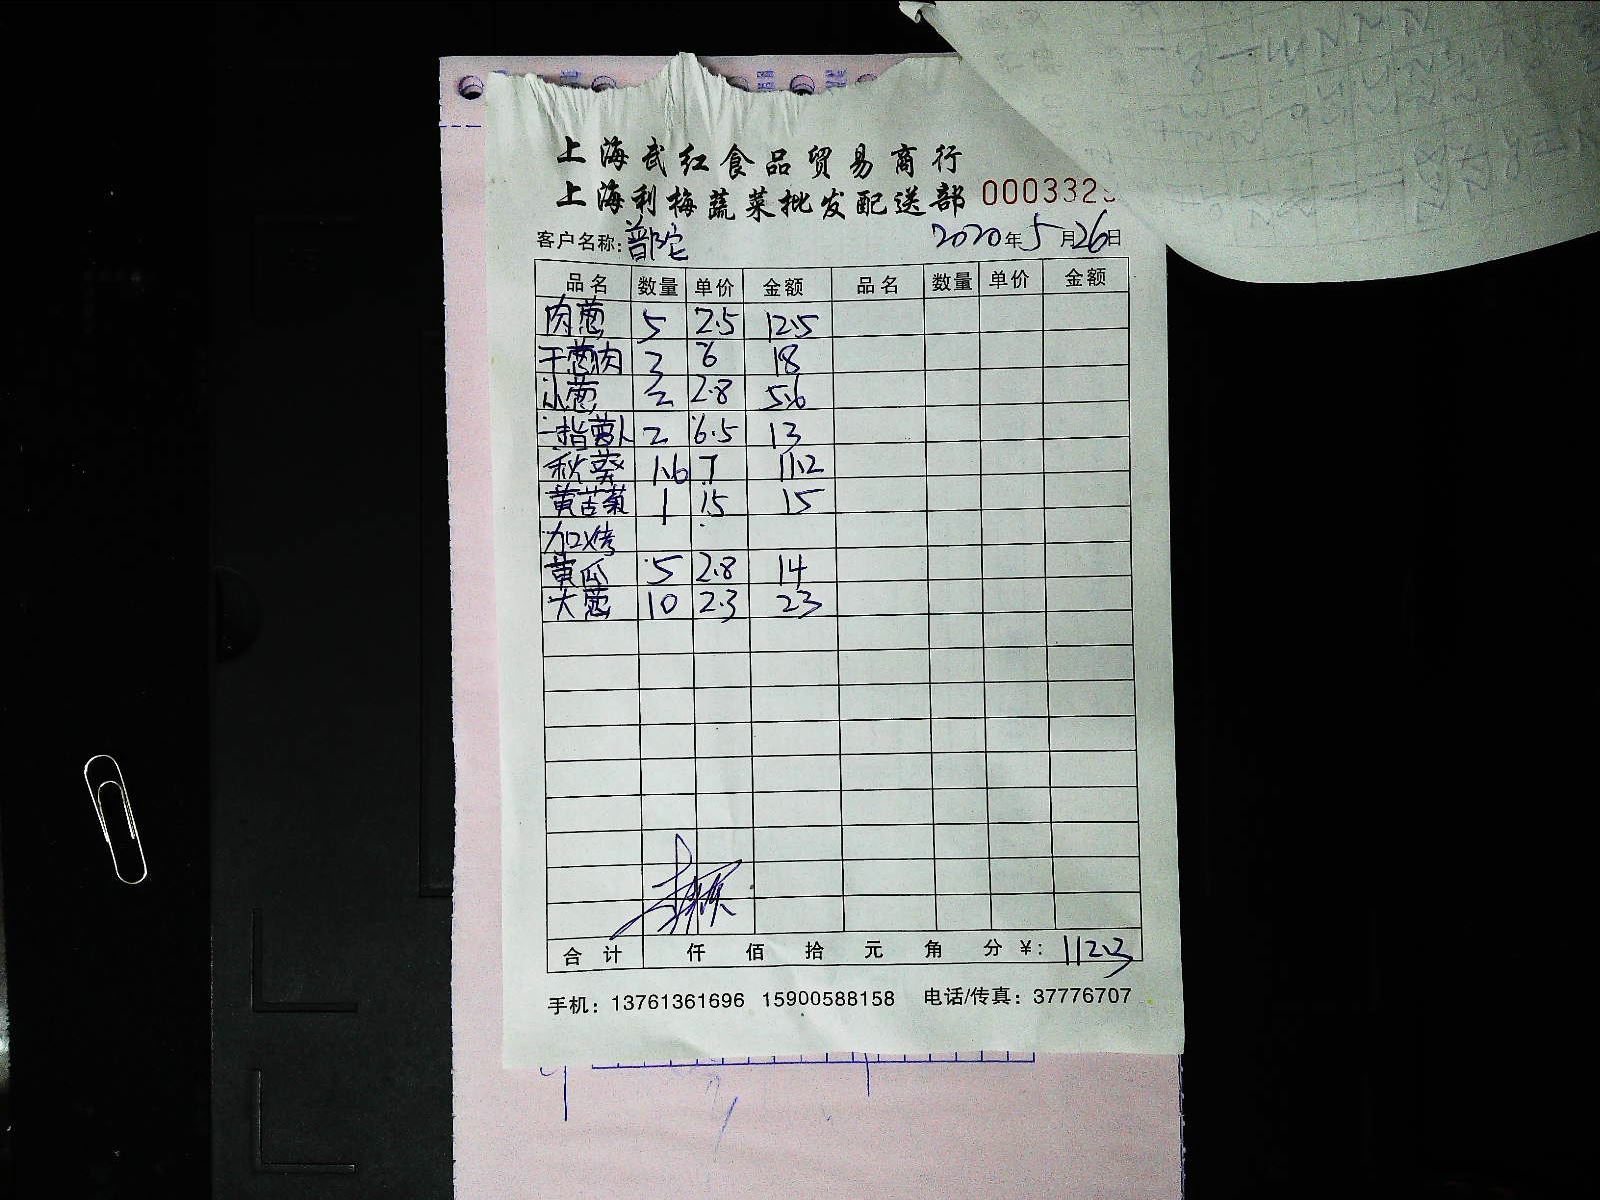 上海武红食品贸易商行
上海利梅蔬菜批发配送部 000332
客户名称:普陀 2020年5月26日
品名 数量 单价 金额 品名 数量 单价 金额
肉葱 5 2.5 12.5
干葱肉 3 6 18
小葱 2 2.8 5.6
一指萝卜 2 6.5 13
秋葵 1.6 7 11.2
黄苦菊 1 15 15
加烤
黄瓜 5 2.8 14
大葱 10 2.3 23
合计 仟 佰 拾 元 角 分 ¥: 112.3
手机: 13761361696 15900588158 电话/传真: 37776707